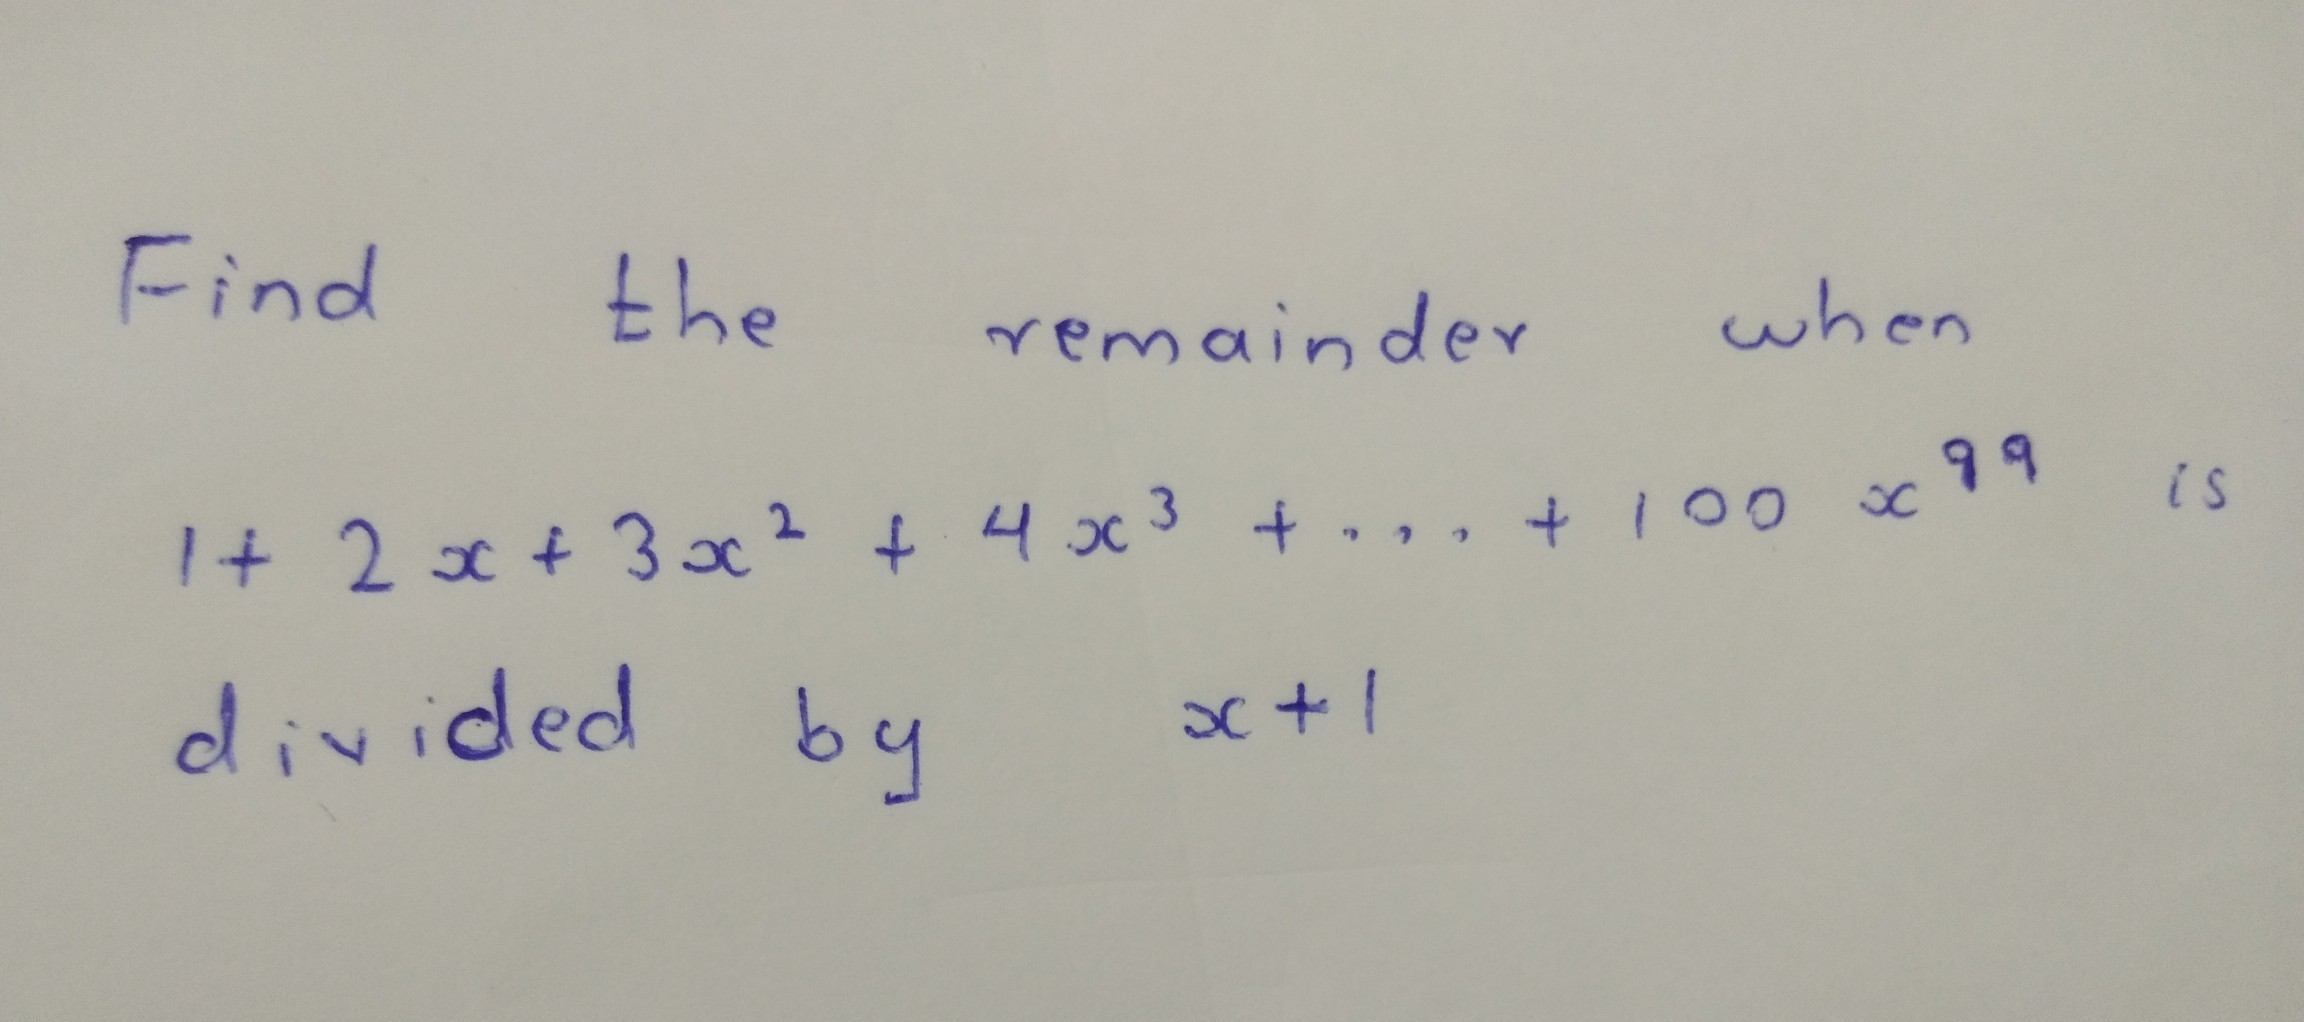 Find the remainder when
1 + 2x + 3x² + 4x³ + ... + 100 x⁹⁹ is
divided by x + 1